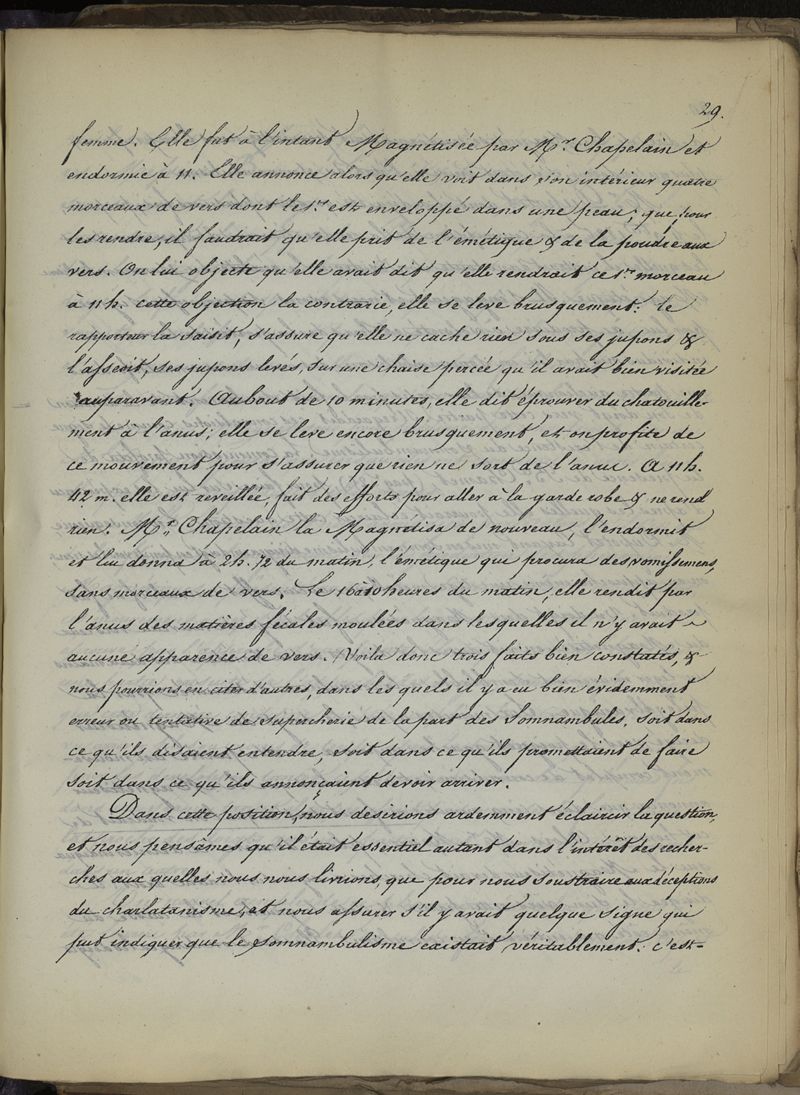 29.
femme. Elle fut à l'intant Magnétisée par Mr. Chapelain et
endormie à 11. Elle annonce alors qu'elle voit dans son intérieur quatre
morceaux de vers dont le 1er est enveloppé dans une peau; que, pour
les rendre, il faudrait qu'elle prit de l'émétique & de la poudre aux
vers. On lui objecte qu'elle avait dit qu'elle rendrait ce 1er morceau
à 11 h. cette objection la contrarie, elle se leve brusquement: le
rapporteur la saisit, s'assure qu'elle ne cache rien sous ses jupons &
l'asseoit, ses jupons levés, sur une chaise percée qu'il avait bien visitée
auparavant. Au bout de 10 minutes, elle dit éprouver du chatouille-
ment à l'anus; elle se leve encore brusquement, et on profite de
ce mouvement pour s'assurer que rien ne sort de l'anus. A 11 h.
42 m. elle est reveillée, fait des efforts pour aller à la garde robe & ne rend
rien. Mr. Chapelain la Magnétisa de nouveau, l'endormit
et lui donna à 2 h. 1/2 du matin, l'émétique qui procura des vomissemens,
sans morceaux de vers. Le 16 à 10 heures du matin, elle rendit par
l'anus des matières fécales moulées dans lesquelles il n'y avait
aucune apparence de vers. Voila donc trois faits bien constatés, &
nous pourrions en citer d'autres, dans les quels il y a eu bien évidemment
erreur ou tentative de supercherie de la part des Somnambules, soit dans
ce qu'ils disaient entendre, soit dans ce qu'ils promettaient de faire
soit dans ce qu'ils annonçaient devoir arriver.
Dans cette position, nous desirions ardemment éclaircir la question,
et nous pensâmes qu'il était essentiel autant dans l'intérêt des recher-
ches aux quelles nous nous livrions, que pour nous soustraire aux déceptions
du charlatanisme, et nous assurer s'il y avait quelque signe qui
put indiquer que le somnambulisme existait véritablement. c'est-